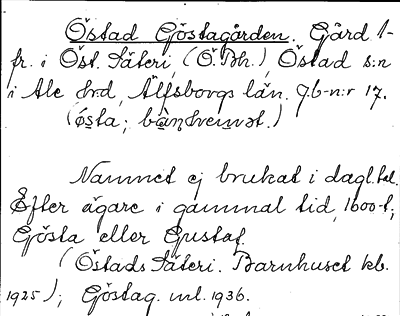 Östad Göstagården. Gård 1-
fr. i Öst. Säteri, (Ö. Bh.), Östad s:n
i Ale hrd, Älfsborgs län. Jb-n:r 17.
(østa; bàn̥hemət.)
Namnet ej brukat i dagl. tal.
Efter ägare i gammal tid, 1600-t,
Gösta eller Gustaf.
(Östads Säteri. Barnhuset kb.
1925); Göstag. ml. 1936.